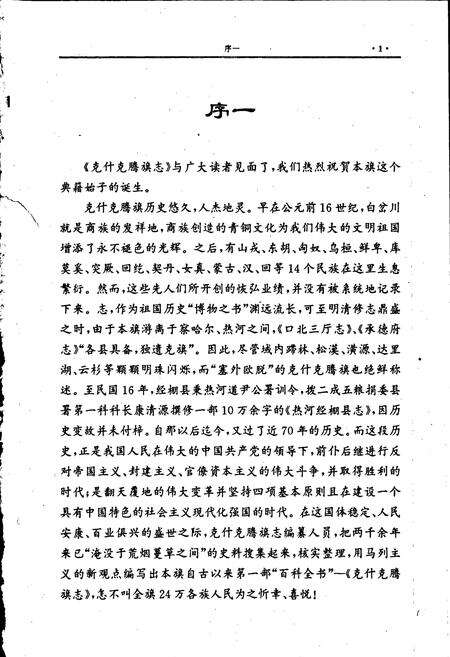 序一
·1·
序一
《克什克腾旗志》与广大读者见面了,我们热烈祝贺本旗这个
典籍始于的诞生。
克什克腾旗历史悠久,人杰地灵。早在公元前16世纪,白岔川
就是商族的发祥地,商族创造的青铜文化为我们伟大的文明祖国
增添了永不褪色的光辉。之后,有山戎、东胡、匈奴、乌桓、鲜卑、库
莫奚、突厥、回纥、契丹、女真、蒙古、汉、回等14个民族在这里生息
繁衍。然而,这些先人们所开创的恢弘业绩,并没有被系统地记录
下来。志,作为祖国历史“博物之书”渊远流长,可至明清修志鼎盛
之时,由于本旗游离于察哈尔、热河之间,《口北三厅志》、《承德府
志》“各县具备,独遗克旗”。因此,尽管域内蹛林、松漠、潢源、达里
湖、云杉等颗颗明珠闪烁,而“塞外瓯脱”的克什克腾旗也绝鲜称
述。至民国16年,经棚县秉热河道尹公署训令,拨二成五粮捐委县
署第一科科长康清源撰修一部10万余字的《热河经棚县志》,因历
史变故并未付梓。自那以后迄今,又过了近70年的历史。而这段历
史,正是我国人民在伟大的中国共产党的领导下,前仆后继进行反
对帝国主义、封建主义、官僚资本主义的伟大斗争,并取得胜利的
时代;是翻天覆地的伟大变革并坚持四项基本原则且在建设一个
具有中国特色的社会主义现代化强国的时代。在这国体稳定、人民
安康、百业俱兴的盛世之际,克什克腾旗志编纂人员,把两千余年
来已“淹没于荒烟蔓草之间”的史料搜集起来,核实整理,用马列主
义的新观点编写出本旗自古以来第一部“百科全书”—《克什克腾
旗志》,怎不叫全旗24万各族人民为之忻幸、喜悦!